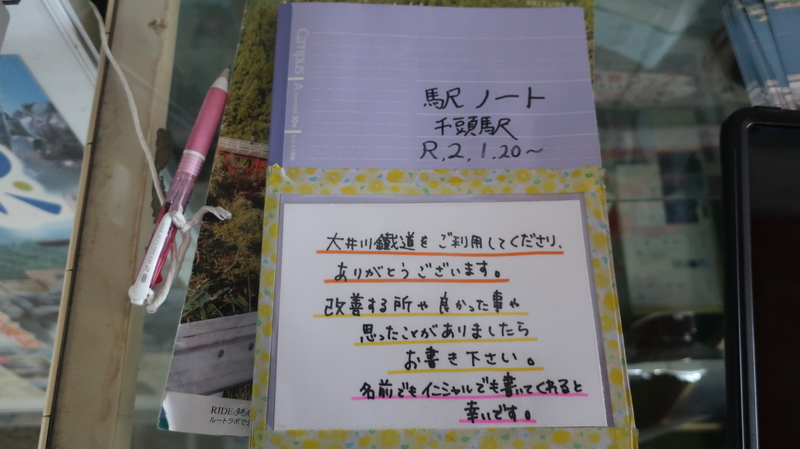 Campus
駅ノート
千頭駅
R.2.1.20～
大井川鐵道をご利用してくださり、
ありがとうございます。
改善する所や良かった事や
思ったことがありましたら
お書き下さい。
名前でもイニシャルでも書いてくれると
幸いです。